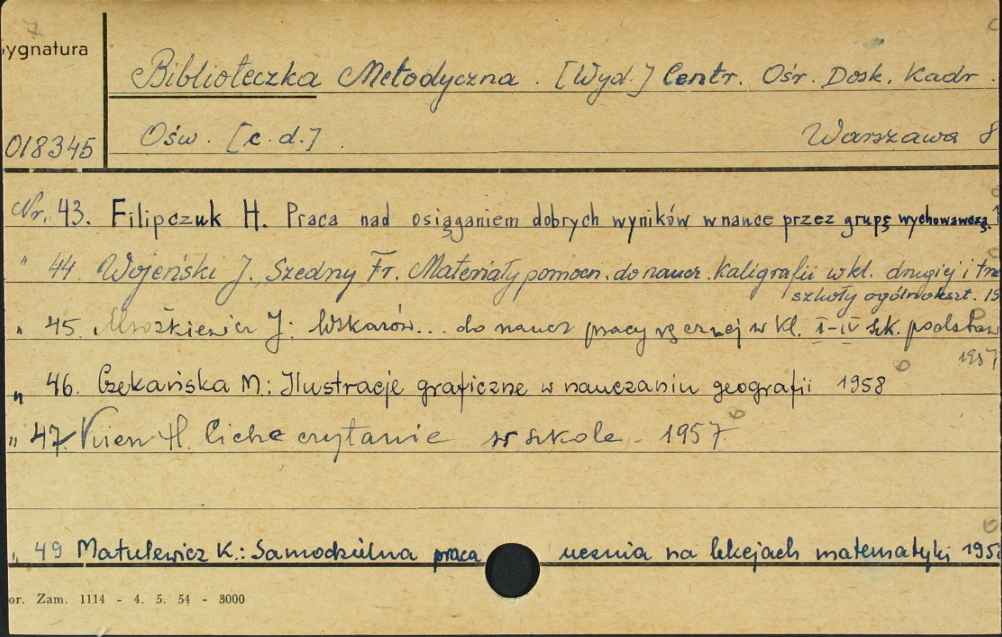 7
ygnatura
Biblioteczka Metodyczna. [Wyd.] Centr. Ośr. Dosk. Kadr
018345 Ośw. [c.d.] Warszawa 8
Nr. 43. Filipczuk H. Praca nad osiąganiem dobrych wyników w nauce przez grupę wychowawczą.
" 44 Wojeński J., Szedny Fr. Materiały pomocn. do naucz. kaligrafii w kl. drugiej i trze
szkoły ogólnokszt. 19
" 45. J: Wskazów... do naucz pracy ręcznej w kl. I-IV szk. podstaw
1957
" 46. Czekańska M: Ilustracje graficzne w nauczaniu geografii 1958
" 47. H. Ciche czytanie w szkole. 1957
" 49 Matulewicz K.: Samodzielna praca ucznia na lekcjach matematyki 195
or. Zam. 1114 - 4. 5. 54 - 8000